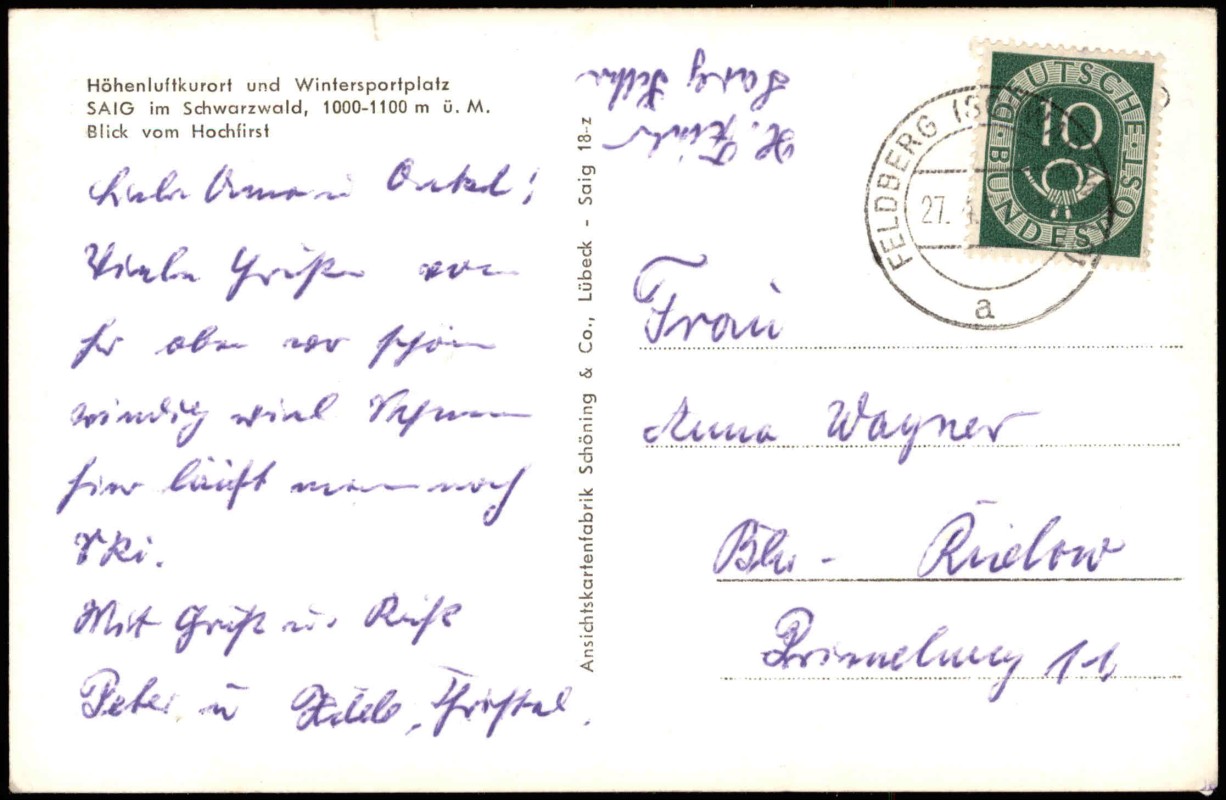 Höhenluftkurort und Wintersportplatz
SAIG im Schwarzwald, 1000-1100 m ü. M.
Blick vom Hochfirst
Liebe Oma u Onkel!
Viele Grüße von
hier oben wo schön
windig viel Schnee
hier läuft man noch
Ski.
Mit Gruß u. Kuß
Peter u
Ansichtskartenfabrik Schöning & Co., Lübeck - Saig 18-z
DEUTSCHE BUNDESPOST
10
FELDBERG (SCH
27. 4.
a
Frau
Anna Wagner
Bln - Rudow